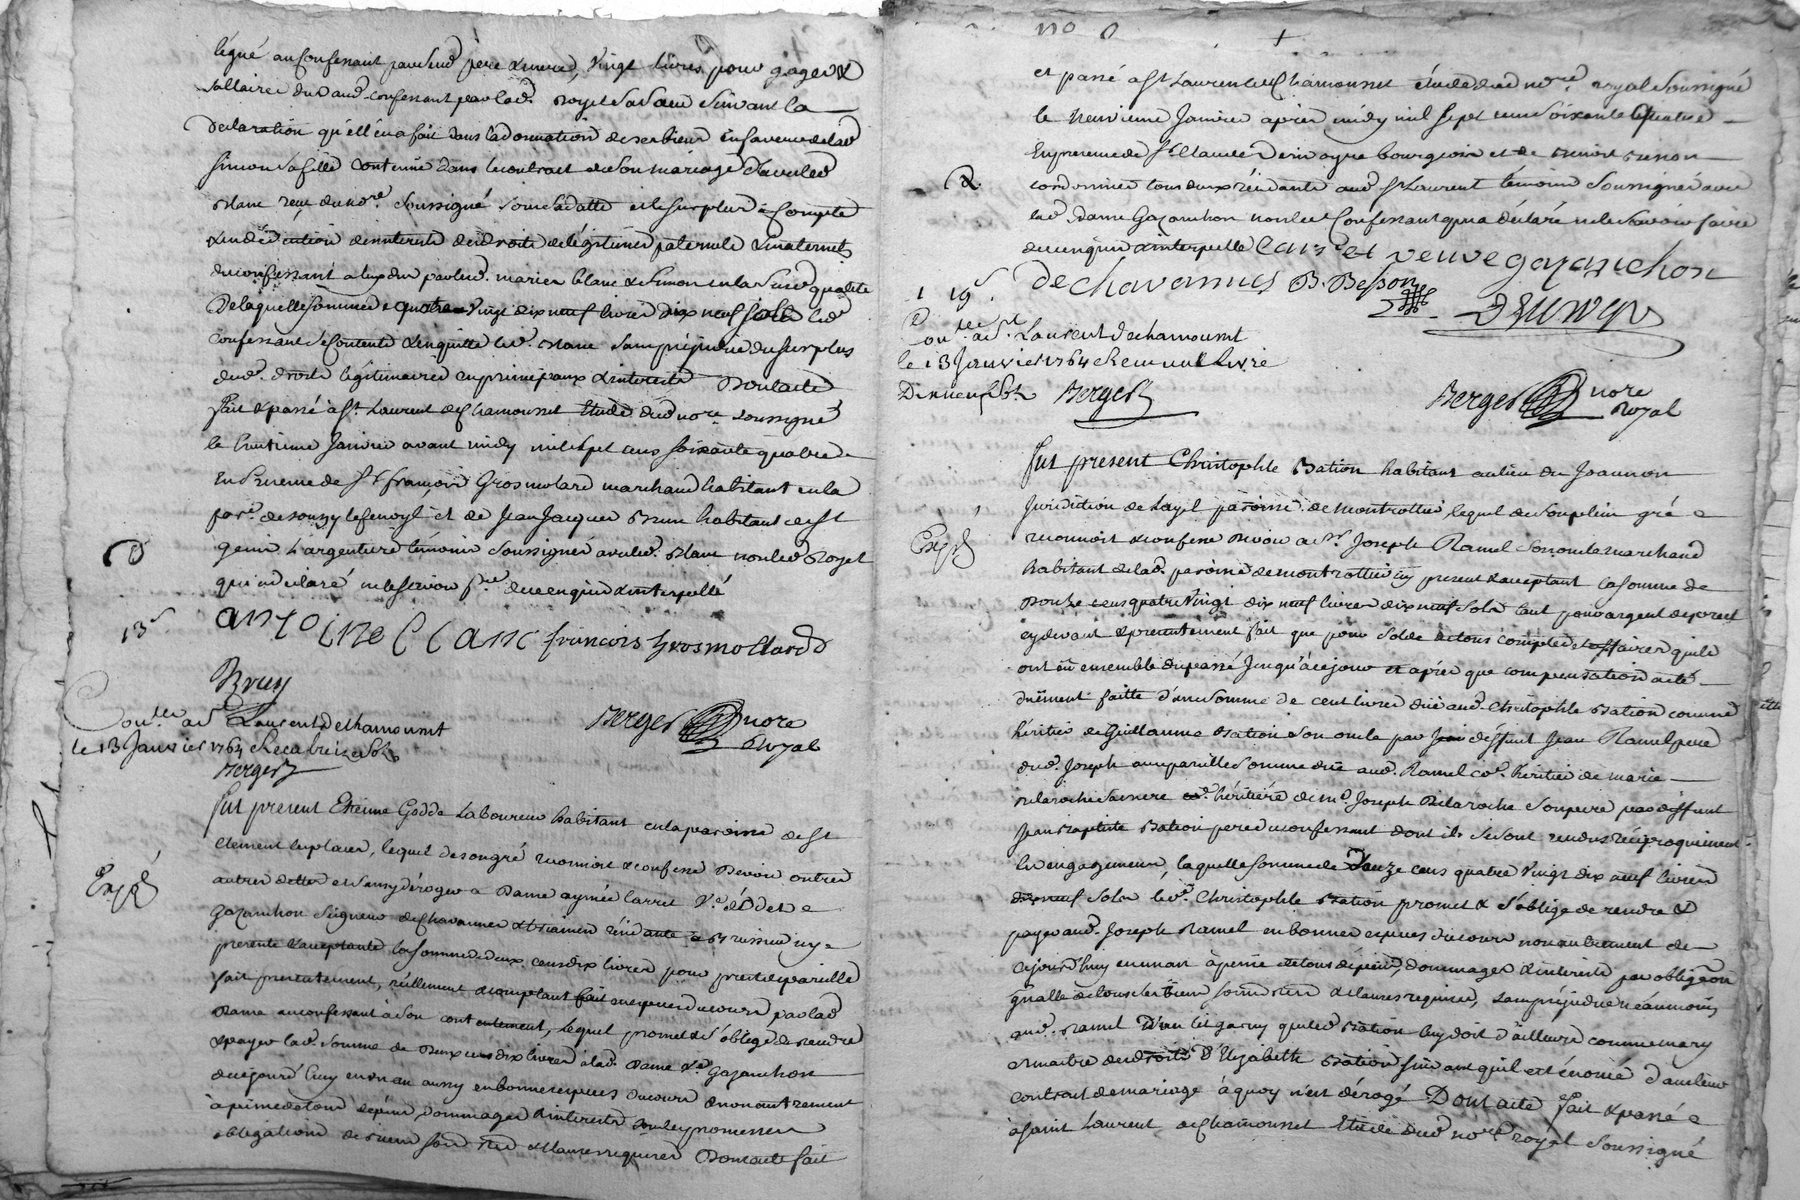 légué au Confessant par seud père & mere, Vingt livres pour gages &
sallaires dus aud. confessant par lad. Royet sa sœur suivant la
Declaration qu'elle en a fait dans la donnation de ses biens en faveur de lad
simon sa fille contenüe dans le contrat de son mariage avec led
Blanc reçu du nore. soussigné sous sa datte et le surplus à Compte
& en déduction des interests des droits de légitimes paternels & maternels
du confessant a lux dus par led. mariés blanc & Simon en la susd qualité
De laquelle somme de quatre Vingt dix neuf livres dix neuf sols led
confessant se contente & en quitte led. Blanc sans préjudice du surplus
dud. droits legitimaires en principaux & interests Dont acte
fait & passé a St. Laurent de Chamousset Etude dud nore soussigné
le huitieme Janvier avant midy mil sept cens soixante quatre
En presence de Sr. françois Grosmolard marchand habitant en la
parse. de souzy l'argentiere et de Jean Jacques Brun habitant de St
genis L'argentiere témoins soussignés avec led. Blanc non led Royet
qui a declaré ne le sçavoir fre. de ce enquis & interpellé
13s
antoine Blanc francois Grosmollard
Brun
Berger nore
Royal
Conlle. a St Laurent de Chamousset
le 13 Janvier 1764 Recu treize sols
Berger
Fut present Etienne Godde Laboureur habitant en la paroisse de St
Clement les places, lequel de son gré reconnoit & confesse Devoir outre
autres dettes et sans y déroger a Dame aymée Carret Ve. de Sr de
Gazanchon Seigneur de Chavannes & residante a Bressieu icy
Expé
presente & acceptante la somme de deux cens dix livres pour prest de pareille
fait presentement, réellement & comptant fait en especes du cours par lad
Dame au confessant à son contentement, lequel promet & s'oblige de rendre
& payer lad. somme de Deux cens dix livres à lad. Dame Ve. Gazanchon
de ce jourd'huy en un an aussy en bonnes especes du cours & non autrement
à peine de tous depens, dommages & interests par les promesses
obligations de biens soumissions & clauses requises Dont acte fait
no 6
et passé a St Laurent de Chamousset étude dud nore. royal soussigné
le neuvieme Janvier après midy mil sept cens soixante quatre
En presence de Sr. Claude Denis ayne bourgeois et de Benoit Besson
cordonnier tous deux résidants aud. St Laurent témoins soussignés avec
lad. Dame Gazanchon non led Confessant qui a déclaré ne le sçavoir faire
de ce enquis & interpellé Carret veuve gazanchon
de chavannes B. Besson
Denis
1 19s
Conlle. a St. Laurent de chamousset
le 13 Janvier 1764 Recu une Livre
Dix neuf sols Berger
Berger nore
Royal
Fut present Christophle Bation habitant au lieu du Joannon
Jurisdiction de Layé paroisse de Montrottier, lequel de son plein gré
Expé
reconnoit & confesse Devoir a Sr. Joseph Ramel son oncle marchand
habitant de lad. paroisse de montrottier icy present & acceptant la somme de
Douze cens quatre Vingt dix neuf livres dix neuf sols tant pour argent de prest
cy devant & presentement fait que pour solde de tous comptes et affaires qu'ils
ont eû ensemble du passé Jusqu'à ce jour et après que compensation a été
düement faitte d'une somme de cent livres düe aud. Christophle Bation comme
héritier de Guillaume Bation son oncle par défunt Jean Ramel pere
dud. Joseph avec pareille somme düe aud. Ramel coe. héritier de marie
Delaroche sa mere héritiére de Me Joseph Delaroche son pere par déffunt
Jean Baptiste Bation pere du confessant dont ils se sont rendus réciproquement
les engagements, laquelle somme de Douze cens quatre Vingt dix neuf livres
dix neuf sols led. Christophle Bation promet & s'oblige de rendre &
payer aud. Joseph Ramel en bonnes especes du cours non autrement de
ce jourd'huy en un an à peine de tous dépens, dommages & interests par obligaon
gnalle de tous ses biens soumissions & clauses requises, sans préjudice neanmoins
aud. Ramel D'un lit garny que led Bation luy doit d'ailleurs comme mary
& maitre des droits D'Elizabeth Bation suivant qu'il est énoncé dans leur
contrat de mariage à quoy n'est dérogé Dont acte fait & passé
à saint Laurent de Chamousset Etude dud nore royal soussigné